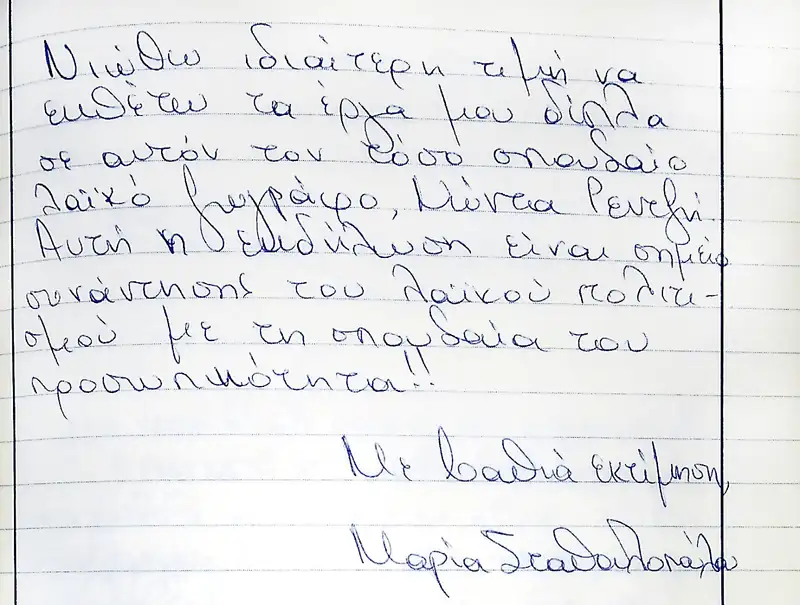 Νιώθω ιδιαίτερη τιμή να
εκθέτω τα έργα μου δίπλα
σε αυτόν τον τόσο σπουδαίο
λαϊκό ζωγράφο, Ρεντζή.
Αυτή η εκδήλωση είναι σημείο
συνάντησης του λαϊκού πολιτι-
σμού με τη σπουδαία του
προσωπικότητα!!
Με βαθιά εκτίμηση,
Μαρία